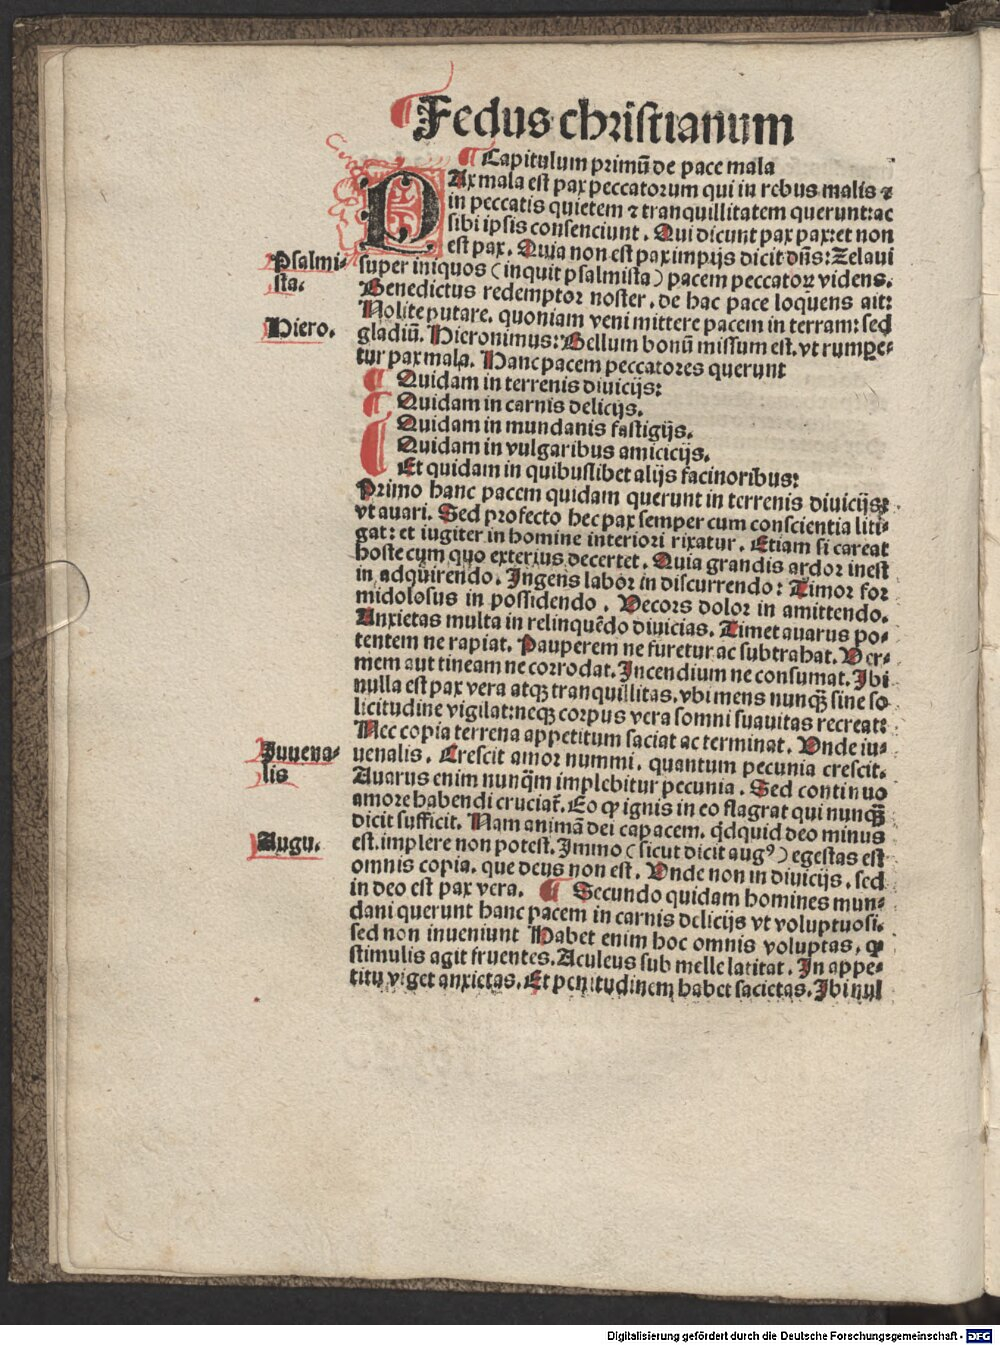 Fedus christianum
Capitulum primū de pace mala
PAx mala est pax peccatorum qui in rebus malis ⁊
in peccatis quietem ⁊ tranquillitatem querunt: ac
sibi ipsis consenciunt. Qui dicunt pax pax: et non
est pax. Quia non est pax impijs dicit dñs: Zelaui
Psalmi-
sta.
super iniquos (inquit psalmista) pacem peccatoꝝ videns.
Benedictus redemptor noster. de hac pace loquens ait:
Nolite putare. quoniam veni mittere pacem in terram: sed
Hiero.
gladiū. Hieronimus: Bellum bonū missum est. vt rumpe-
tur pax mala. Hanc pacem peccatores querunt
Quidam in terrenis diuicijs:
Quidam in carnis delicijs.
Quidam in mundanis fastigijs.
Quidam in vulgaribus amicicijs.
Et quidam in quibuslibet alijs facinoribus:
Primo hanc pacem quidam querunt in terrenis diuicijs:
vt auari. Sed profecto hec pax semper cum conscientia liti-
gat: et iugiter in homine interiori rixatur. Etiam si careat
hoste cum quo exterius decertet. Quia grandis ardor inest
in adquirendo. Ingens labor in discurrendo: Timor for
midolosus in possidendo. Decors dolor in amittendo.
Anxietas multa in relinquēdo diuicias. Timet auarus po-
tentem ne rapiat. Pauperem ne furetur ac subtrahat. Ver-
mem aut tineam ne corrodat. Incendium ne consumat. Ibi
nulla est pax vera atqꝫ tranquillitas. vbi mens nunq̄ꝫ sine so
licitudine vigilat: neqꝫ corpus vera somni suauitas recreat:
Nec copia terrena appetitum saciat ac terminat. Vnde iu-
Juuena-
lis
uenalis. Crescit amor nummi. quantum pecunia crescit.
Auarus enim nunq̄m implebitur pecunia. Sed continuo
amore habendi cruciat̄. Eo ꝙ ignis in eo flagrat qui nunq̄ꝫ
dicit sufficit. Nam animā dei capacem. q̇dquid deo minus
Augu.
est. implere non potest. Immo (sicut dicit augꝰ) egestas est
omnis copia. que deus non est. Vnde non in diuicijs. sed
in deo est pax vera. Secundo quidam homines mun-
dani querunt hanc pacem in carnis delicijs vt voluptuosi.
sed non inueniunt Habet enim hoc omnis voluptas. ꝙ
stimulis agit fruentes. Aculeus sub melle latitat. In appe-
titu viget anxietas. Et penitudinem habet sacietas. Ibi nul
Digitalisierung gefördert durch die Deutsche Forschungsgemeinschaft - DFG